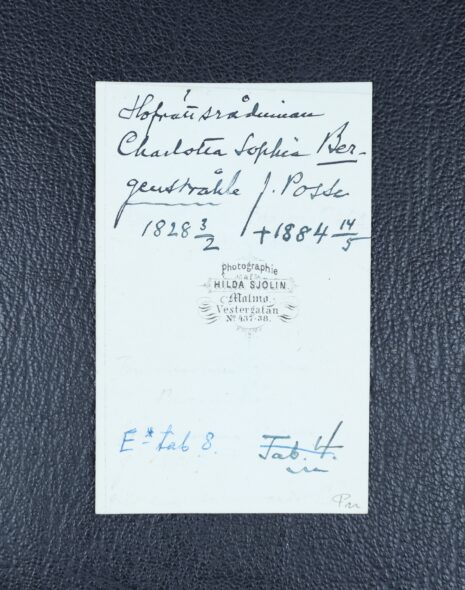 Hofrättsrådinnan
Charlotta Sophia Ber-
genstråhle f. Posse
1828 3/2 +1884 14/5
photographie
af
HILDA SJÖLIN
Malmö
Vestergatan
No 437-38.
E* tab 8. Tab. 4.